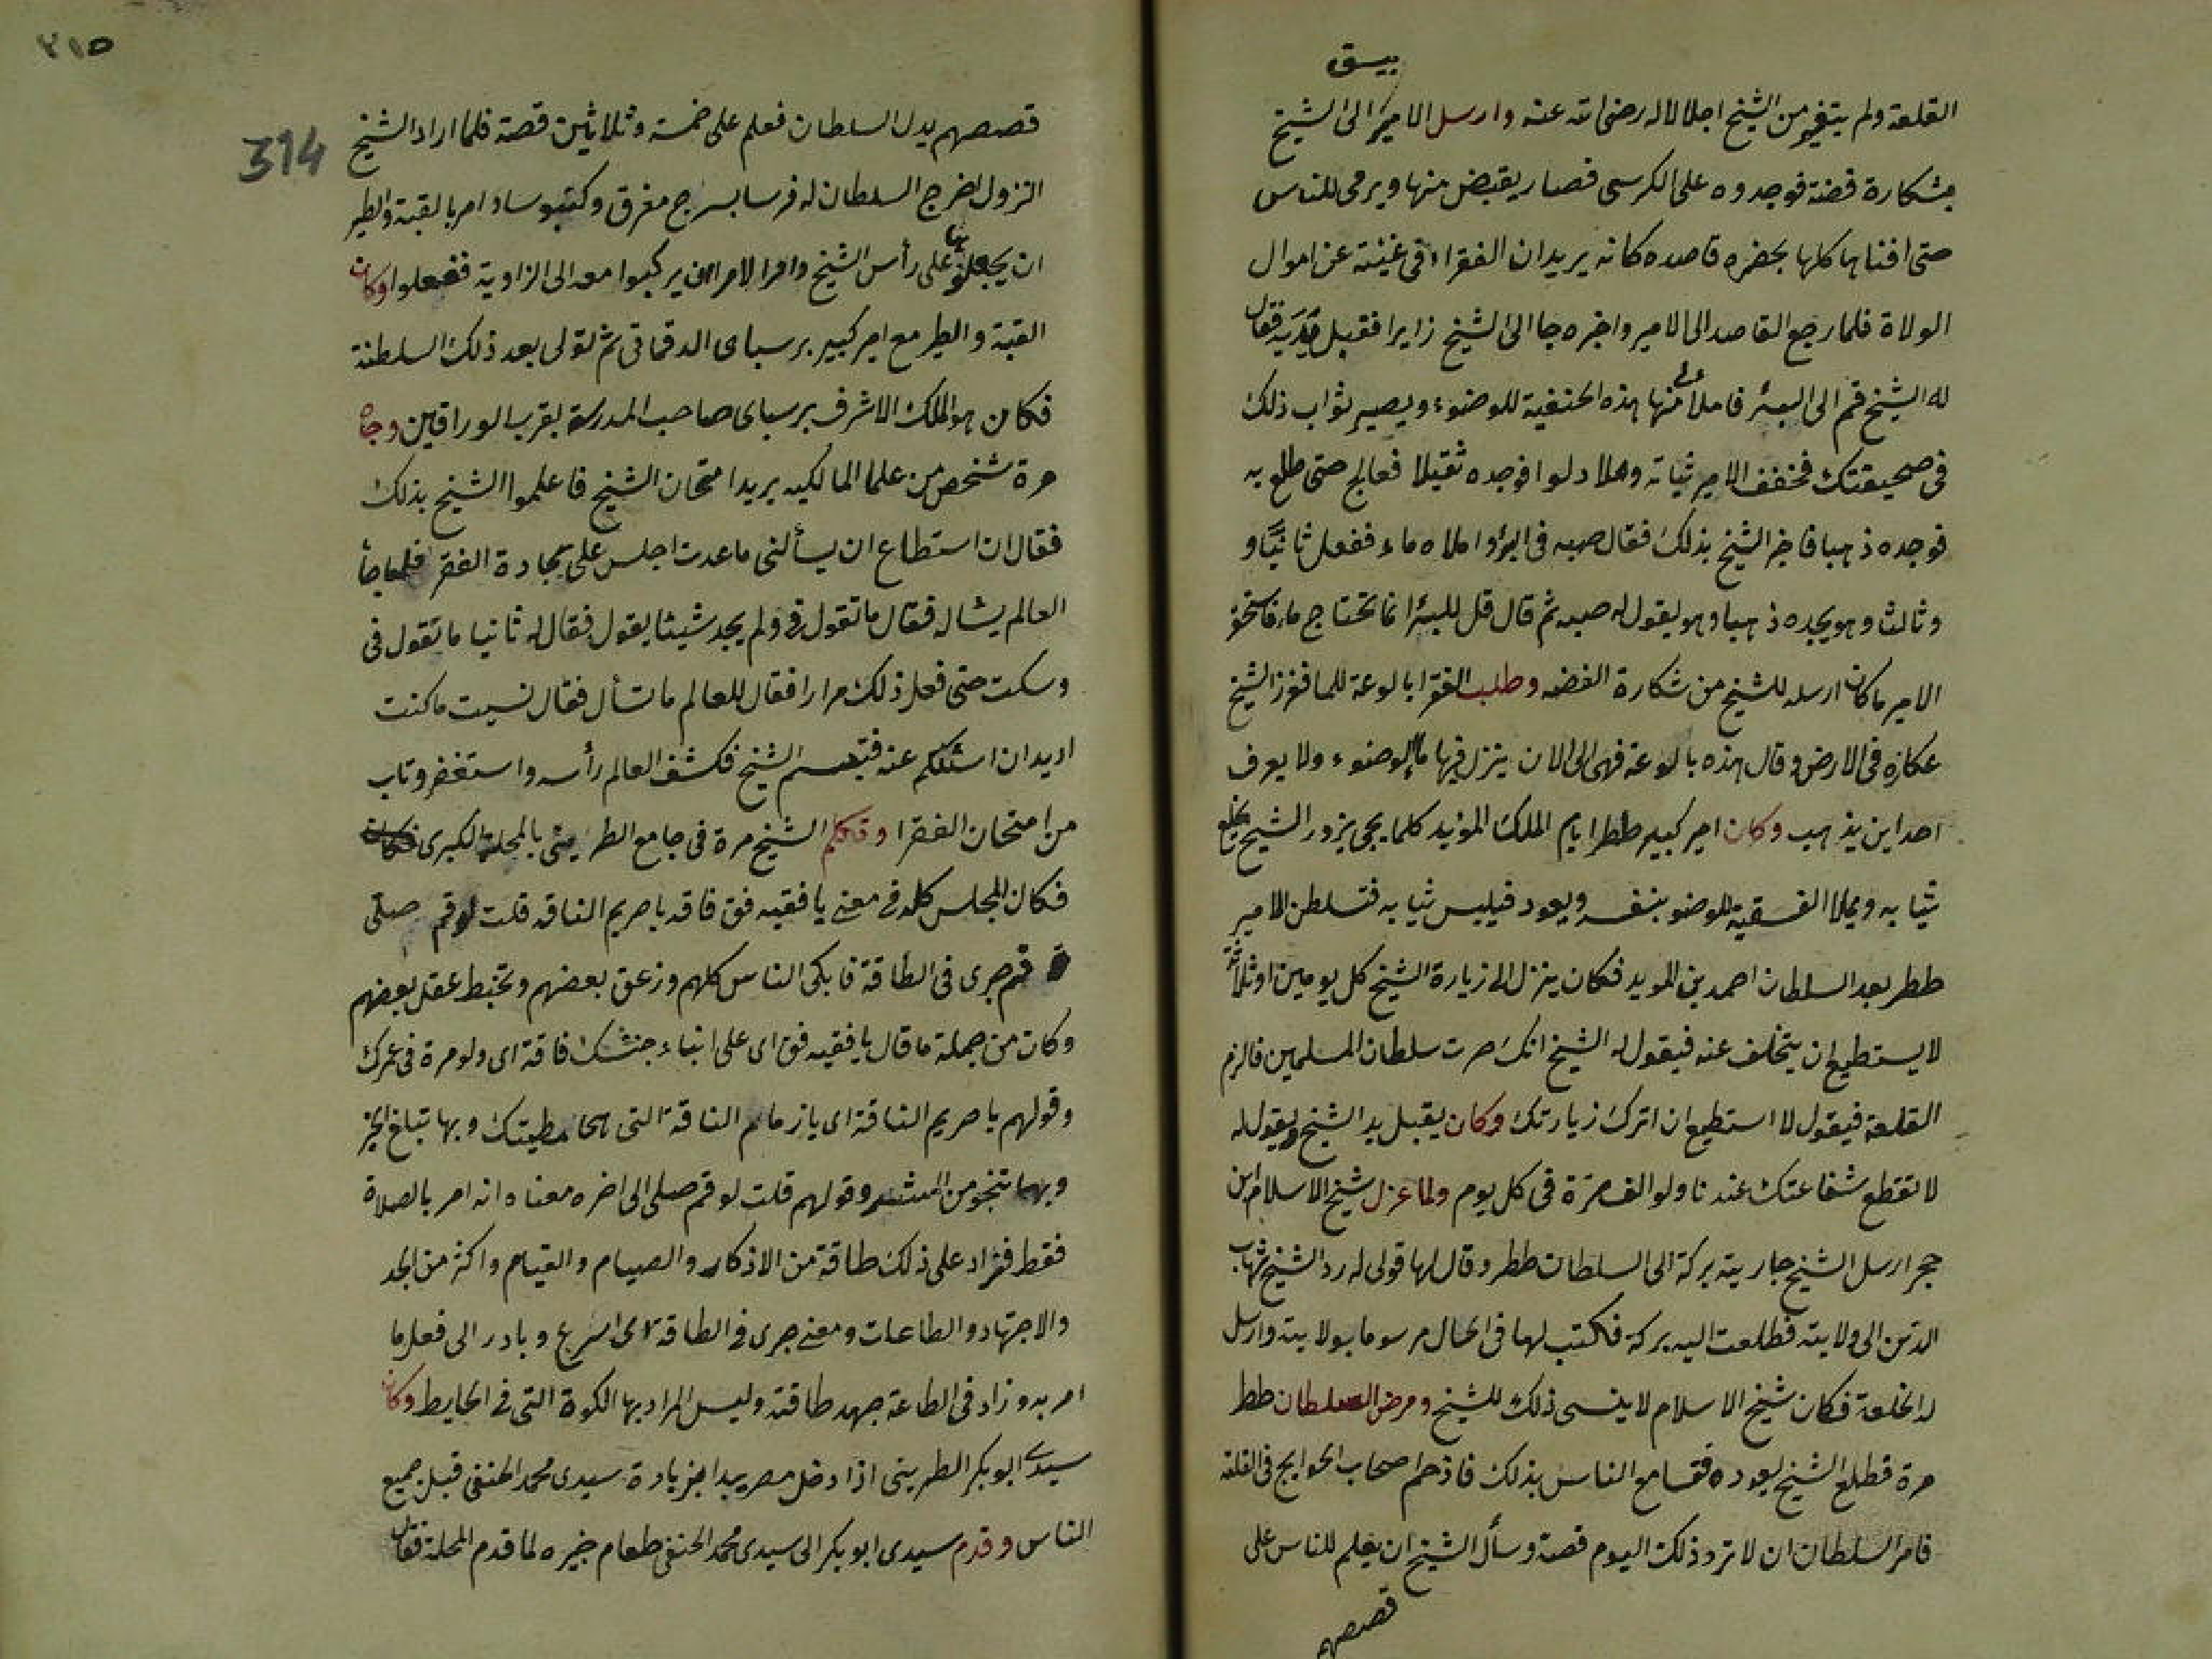 بيسق
القلعة ولم يتغير من الشيخ اجلالا له رضى الله عنه وارسل الامير الى الشيخ
بشكارة فضة فوجدوه على الكرسى فصار يقبض منها ويرمى للناس
حتى افناها كلها بحضره قاصده كانه يريد ان الفقراء فى غنية عن اموال
الولاة فلما رجع القاصد الى الامير واخبره جا الى الشيخ زايرا فقبل يديه فقال
له الشيخ قم الى البئر فاملأ منها هذه الحنفية للوضوء ويصير ثواب ذلك
فى صحيفتك فخفف الامير ثيابه وملا دلوا فوجده ثقيلا فعالج حتى طلع به
فوجده ذهبا فاخبر الشيخ بذلك فقال صبه فى البئر واملاه ماء ففعل ثانيا و
وثالث وهو يجده ذهبا وهو يقول له صبه ثم قال قل للبئر انما نحتاج ماء فاستحقر
الامير ما كان ارسله للشيخ من شكارة الفضه وطلب الفقرا بالوعة للما فغرز الشيخ
عكازه فى الارض وقال هذه بالوعة فهى الى الان ينزل فيها ماء الوضوء ولا يعرف
احد اين يذهب وكان امير كبير ططر ايام الملك المؤيد كلما يجى يزور الشيخ يخلع
ثيابه ويملا الفسقية للوضو بنفسه ويعود فيلبس ثيابه فتسلطن الامير
ططر بعد السلطان احمد بن المويد فكان ينزل الى زيارة الشيخ كل يومين او ثلاثة
لا يستطيع ان يتخلف عنه فيقول له الشيخ انك صرت سلطان المسلمين فالزم
القلعة فيقول لا استطيع ان اترك زيارتك وكان يقبل يد الشيخ ويقول له
لا تقطع شفاعتك عندنا ولو الف مرة فى كل يوم ولما عزل شيخ الاسلام ابن
حجر ارسل الشيخ جاريته بركة الى السلطان ططر وقال لها قولى له رد الشيخ شهاب
الدين الى ولايته فطلعت اليه بركة فكتب لها فى الحال مرسوما بولايته وارسل
له الخلعة فكان شيخ الاسلام لا ينسى ذلك للشيخ ومرض السلطان ططر
مرة فطلع الشيخ يعوده فتسامع الناس بذلك فازدحم اصحاب الحوايج فى القلعة
فامر السلطان ان لا ترد ذلك اليوم قصة وسأل الشيخ ان يعلم للناس على
قصصهم
٣١٥
314
قصصهم بدل السلطان فعلم على خمسة وثلاثين قصة فلما اراد الشيخ
النزول اخرج السلطان له فرسا بسرج مغرق وكنبوسا وامر بالقبة والطير
ان يجعلوها على رأس الشيخ وامر الامرا ان يركبوا معه الى الزاوية ففعلوا وكان
القبة والطير مع امير كبير برسباى الدقماقى ثم تولى بعد ذلك السلطنة
فكان هو الملك الاشرف برسباى صاحب المدرسة بقرب الوراقين وجاه
مرة شخص من علما المالكيه يريد امتحان الشيخ فاعلموا الشيخ بذلك
فقال ان استطاع ان يسألنى ما عدت اجلس على سجادة الفقر فلما جا
العالم يسأله فقال ما تقول فى ولم يجد شيئا يقول فقال له ثانيا ما تقول فى
وسكت حتى فعل ذلك مرارا فقال للعالم ما تسأل فقال نسيت ما كنت
اريد ان اسئلكم عنه فتبسم الشيخ فكشف العالم رأسه واستغفر وتاب
من امتحان الفقرا وتكلم الشيخ مرة فى جامع الطرينى بالمحلة الكبرى
فكان المجلس كله فى معنى يا فقيه فق فاقه يا حريم الناقه قلت لو قم صلى
قم جرى فى الطاقة فابكى الناس كلهم وزعق بعضهم وتخبط عقل بعضهم
وكان من جملة ما قال يا فقيه فق اى على ابناء جنسك فاقة اى ولو مرة فى عمرك
وقولهم يا حريم الناقة اى يا زمام الناقة التى هى مطيتك وبها تبلغ الخير
وبها تنجو من الشر وقولهم قلت لو قم صلى الى اخره معناه انه امر بالصلاة
فقط فزاد على ذلك طاقة من الاذكار والصيام والقيام واكثر من الجد
والاجتهاد والطاعات ومعنى جرى فى الطاقة اى اسرع وبادر الى فعل ما
امر به وزاد فى الطاعة جهد طاقته وليس المراد بها الكوة التى فى الحايط وكان
سيدى ابو بكر الطرينى اذا دخل مصر يبدا بزيارة سيدى محمد الحنفى قبل جميع
الناس وقدم سيدى ابو بكر الى سيدى محمد الحنفى طعام خبيزه لما قدم المحلة فقال